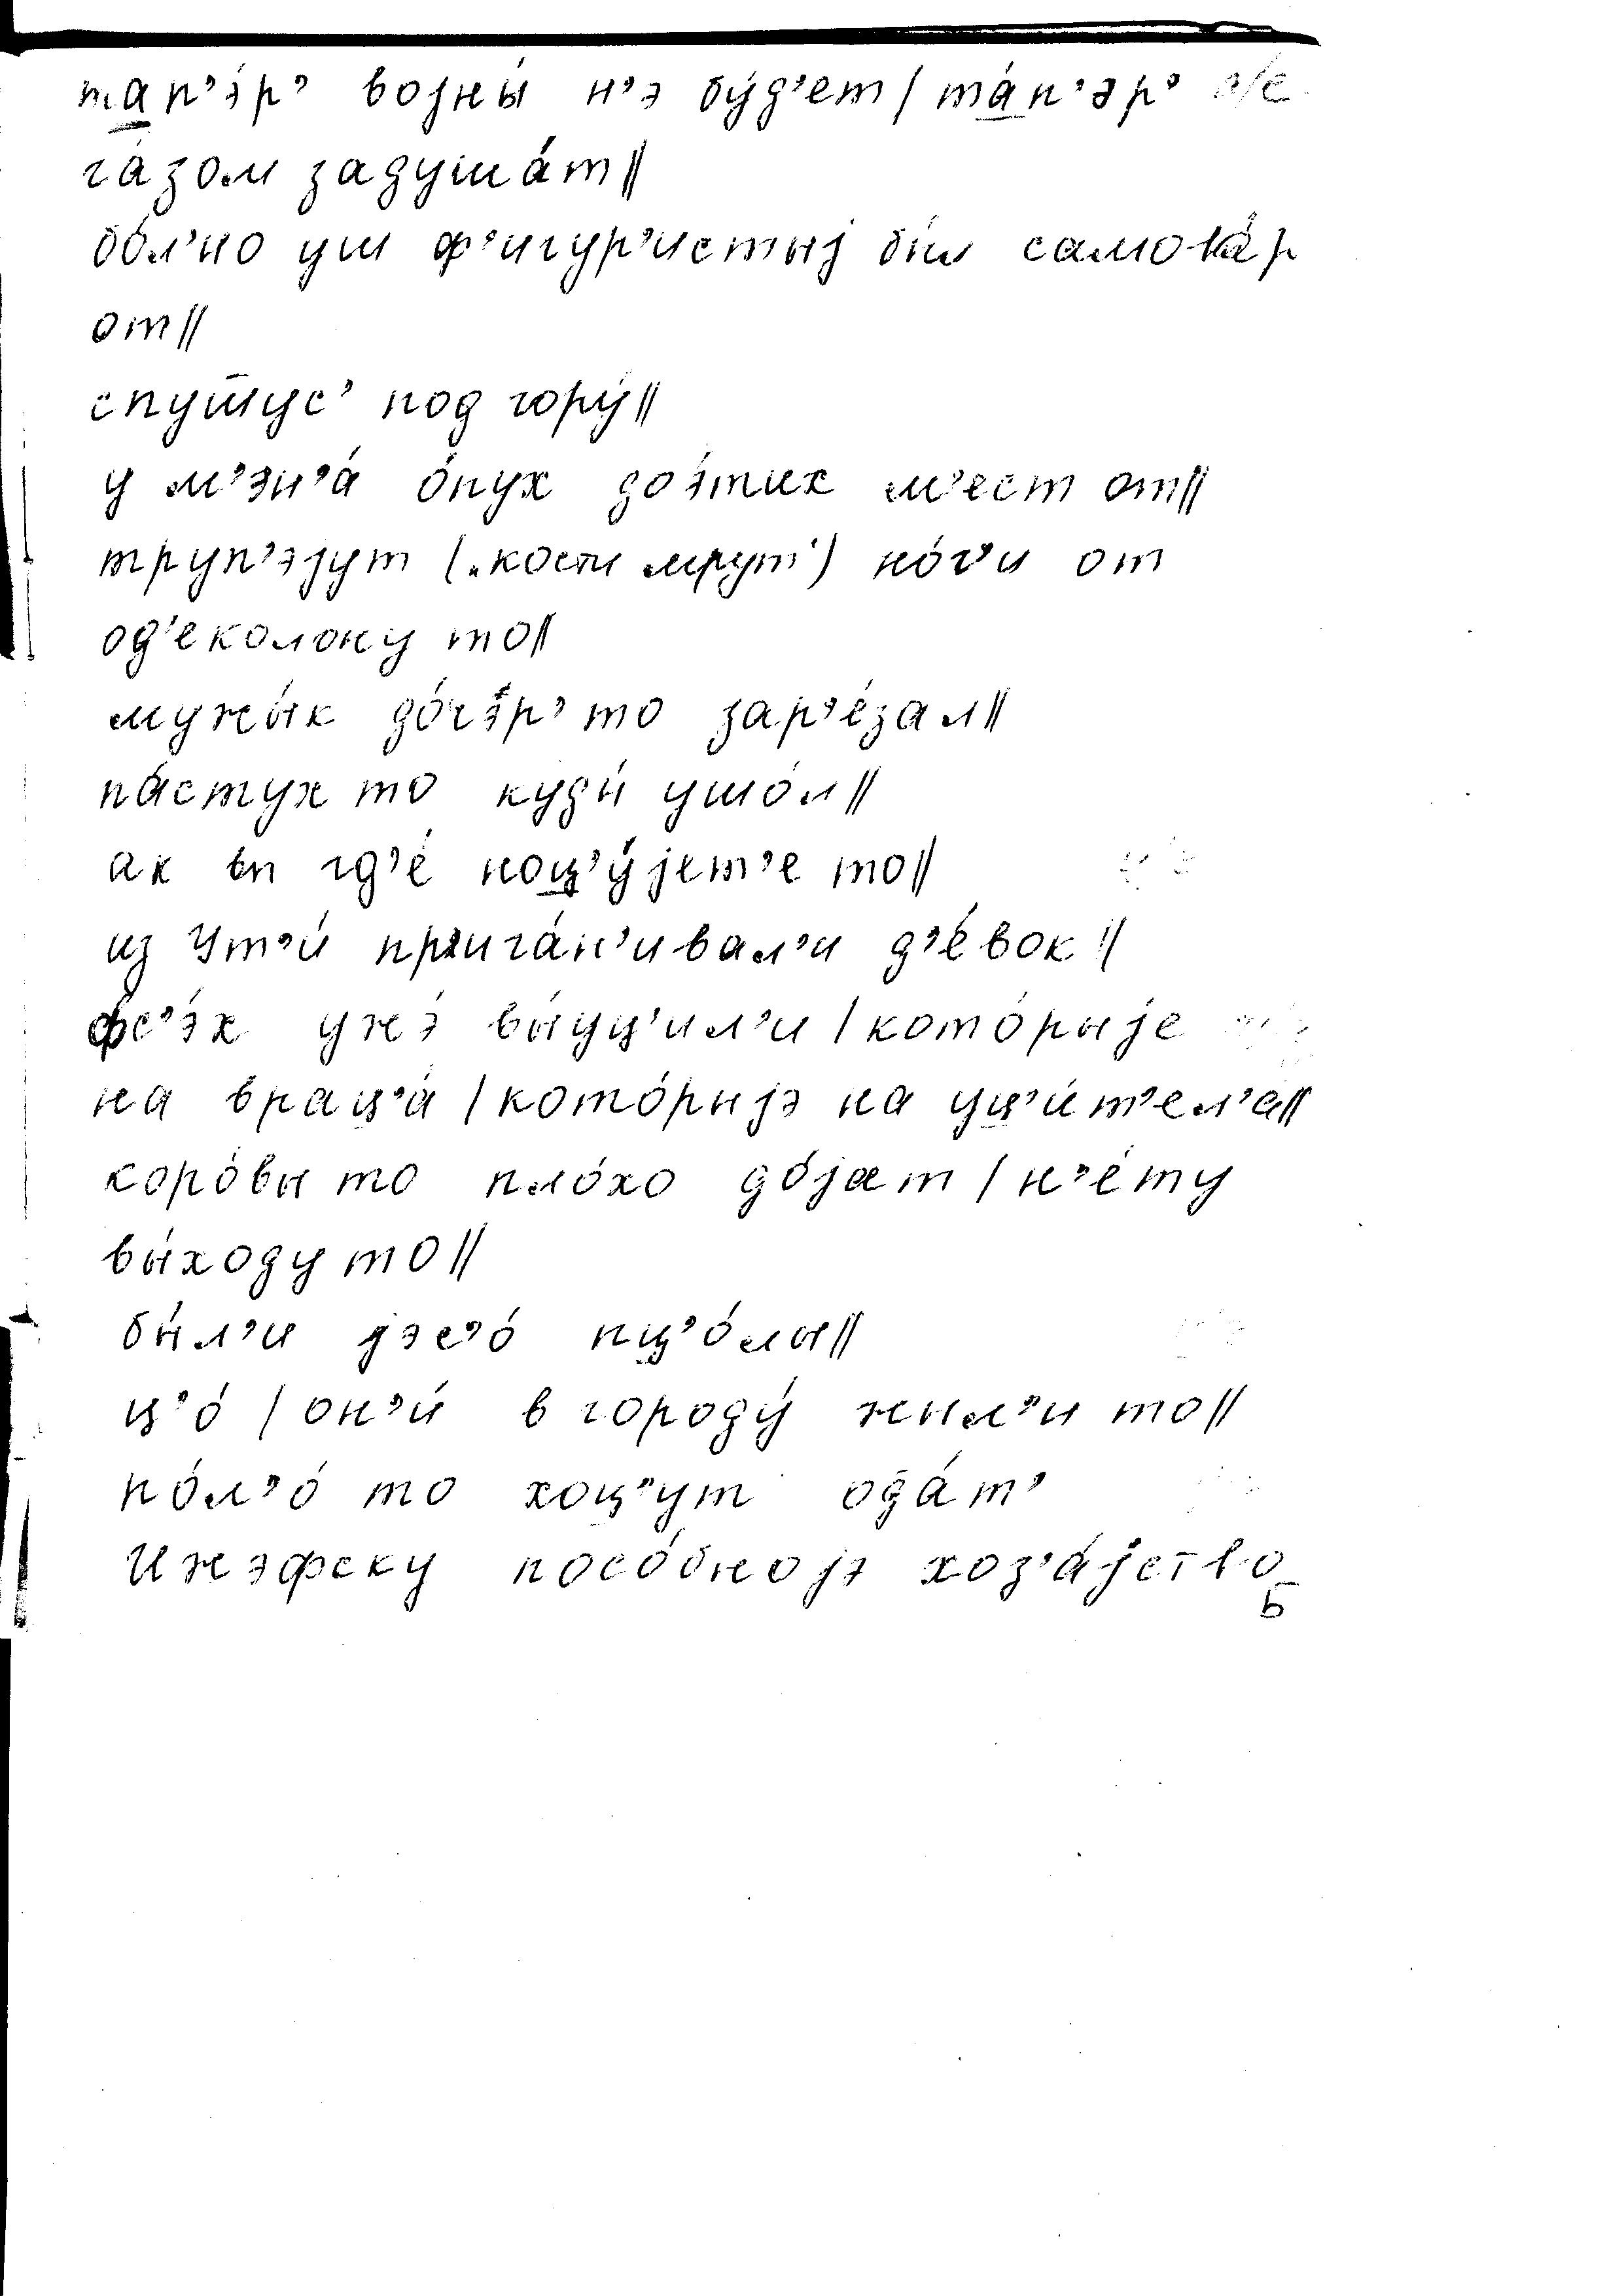 тап’э́р’ воjны́ н’э бу́д’ет / та́п’эр’
га́зом задуша́т //
бо́л’но уш ф’игур’истыj бы́л самова́р
от //
спуш̄ус’ под гору́ //
у м’эн’а́ о́пух до э́тих м’ест от //
труп’эjут („кости мрут“) но́г’и от
од’еколону то //
мужы́к до́ч’эр’ то зар’е́зал //
па́стух то куды́ ушо́л //
ак вы гд’е́ ноц’у́jет’е то //
из Ут’и́ пр’ига́н’ивал’и д’е́вок //
фс’э́х ужэ́ вы́уц’ил’и / кото́рыjе
на врац’а́ / кото́рыjэ на уц’и́т’ел’а //
коро́вы то пло́хо до́jат / н’е́ту
вы́ходу то //
бы́л’и jэс’о́ пц’о́лы //
ц’о́ / он’и́ в городу́ жыл’и то //
по́л’о́ то хоц’ут од̄а́т’
Ижэфску посо́бноjэ хоз’а́jство
Б